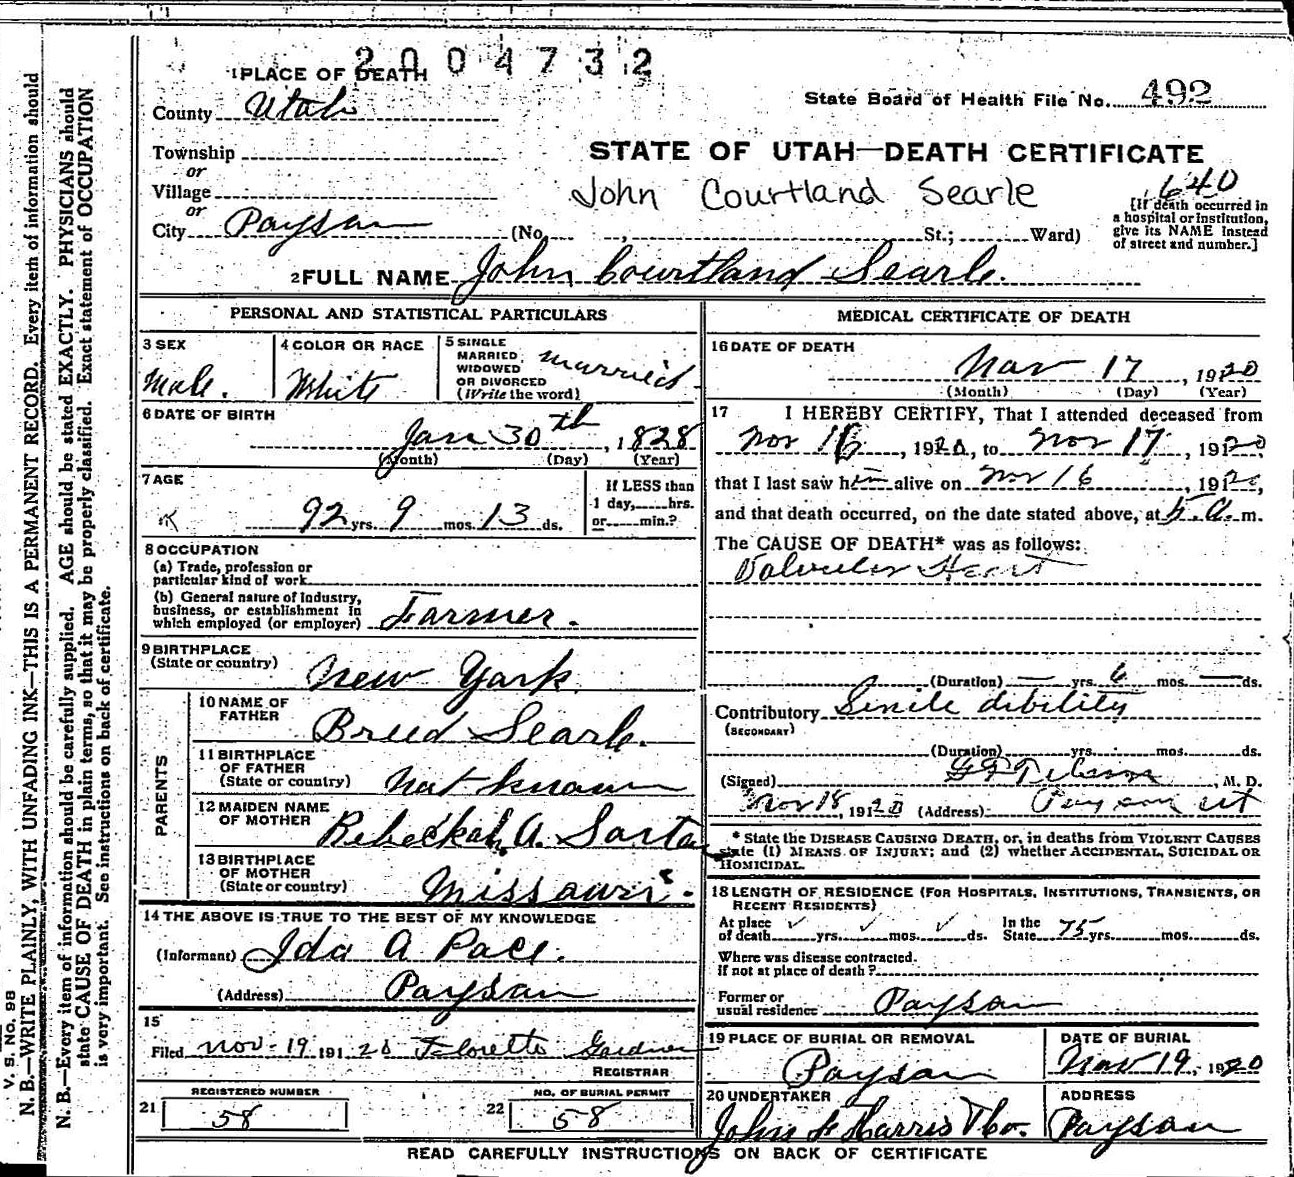 2004732
1 PLACE OF DEATH
County Utah
State Board of Health File No. 492
Township
or
Village
or
City Payson (No. , St.; Ward)
STATE OF UTAH—DEATH CERTIFICATE
John Courtland Searle
640
[If death occurred in
a hospital or institution,
give its NAME instead
of street and number.]
2 FULL NAME John Courtland Searle.
PERSONAL AND STATISTICAL PARTICULARS
3 SEX
Male.
4 COLOR OR RACE
White
5 SINGLE
MARRIED,
WIDOWED
OR DIVORCED
(Write the word)
Married
6 DATE OF BIRTH
Jan 30th, 1828
(Month) (Day) (Year)
7 AGE
92 yrs. 9 mos. 13 ds.
If LESS than
1 day, hrs.
or min.?
8 OCCUPATION
(a) Trade, profession or
particular kind of work
(b) General nature of industry,
business, or establishment in
which employed (or employer) Farmer.
9 BIRTHPLACE
(State or country) New York
PARENTS
10 NAME OF
FATHER Breed Searle.
11 BIRTHPLACE
OF FATHER
(State or country) Not known
12 MAIDEN NAME
OF MOTHER Rebeckah A.
13 BIRTHPLACE
OF MOTHER
(State or country) Missouri.
14 THE ABOVE IS TRUE TO THE BEST OF MY KNOWLEDGE
(Informant) Ida A Pace.
(Address) Payson
15
Filed Nov-19 1920 Floretto Gardner
REGISTRAR
REGISTERED NUMBER
21 58
NO. OF BURIAL PERMIT
22 58
MEDICAL CERTIFICATE OF DEATH
16 DATE OF DEATH
Nov 17, 1920
(Month) (Day) (Year)
17 I HEREBY CERTIFY, That I attended deceased from
Nov 16, 1920, to Nov 17, 1920,
that I last saw him alive on Nov 16, 1920,
and that death occurred, on the date stated above, at 5.a.m.
The CAUSE OF DEATH* was as follows:
Valvular Heart
(Duration) — yrs. 6 mos. — ds.
Contributory Senile dibility
(SECONDARY)
(Duration) yrs. mos. ds.
(Signed) , M. D.
Nov 18, 1920 (Address) Payson ut
* State the DISEASE CAUSING DEATH, or, in deaths from VIOLENT CAUSES
state (1) MEANS OF INJURY; and (2) whether ACCIDENTAL, SUICIDAL OR
HOMICIDAL.
18 LENGTH OF RESIDENCE (FOR HOSPITALS, INSTITUTIONS, TRANSIENTS, OR
RECENT RESIDENTS)
At place
of death ✓ yrs. ✓ mos. ✓ ds. In the
State 75 yrs. mos. ds.
Where was disease contracted.
If not at place of death?
Former or
usual residence Payson
19 PLACE OF BURIAL OR REMOVAL
Payson
DATE OF BURIAL
Nov 19, 1920
20 UNDERTAKER
John Harris
ADDRESS
Payson
READ CAREFULLY INSTRUCTIONS ON BACK OF CERTIFICATE
V. S. No. 98
N. B.—WRITE PLAINLY, WITH UNFADING INK—THIS IS A PERMANENT RECORD. Every item of information should
N. B.—Every item of information should be carefully supplied. AGE should be stated EXACTLY. PHYSICIANS should
state CAUSE OF DEATH in plain terms, so that it may be properly classified. Exact statement of OCCUPATION
is very important. See instructions on back of certificate.